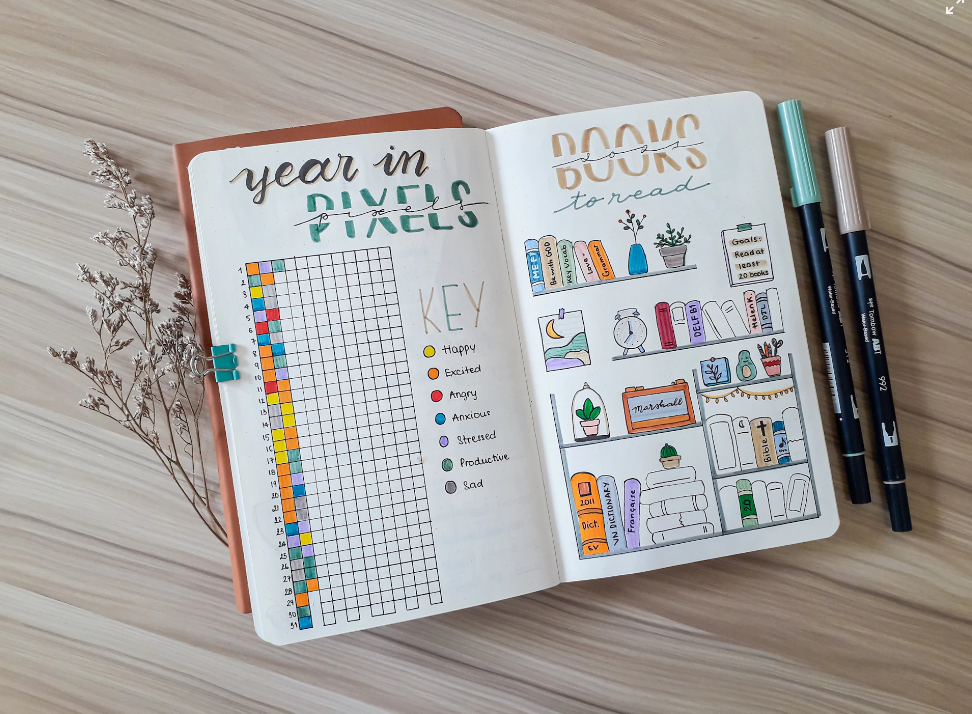 year in
PIXELS
pixels
1
2
3
4
5
6
7
8
9
10
11
12
13
14
15
16
17
18
19
20
21
22
23
24
25
26
27
28
29
30
31
KEY
Happy
Excited
Angry
Anxious
Stressed
Productive
Sad
BOOKS
books
to read
ME FI
Be with GOD
Key Vocab
Love
Grammar
Goals:
Read at
least
20 books
DELF B1
Helen K.
Marshall
Bible
2011
Dict.
EV
VN DICTIONARY
Française
20
Tombow
992